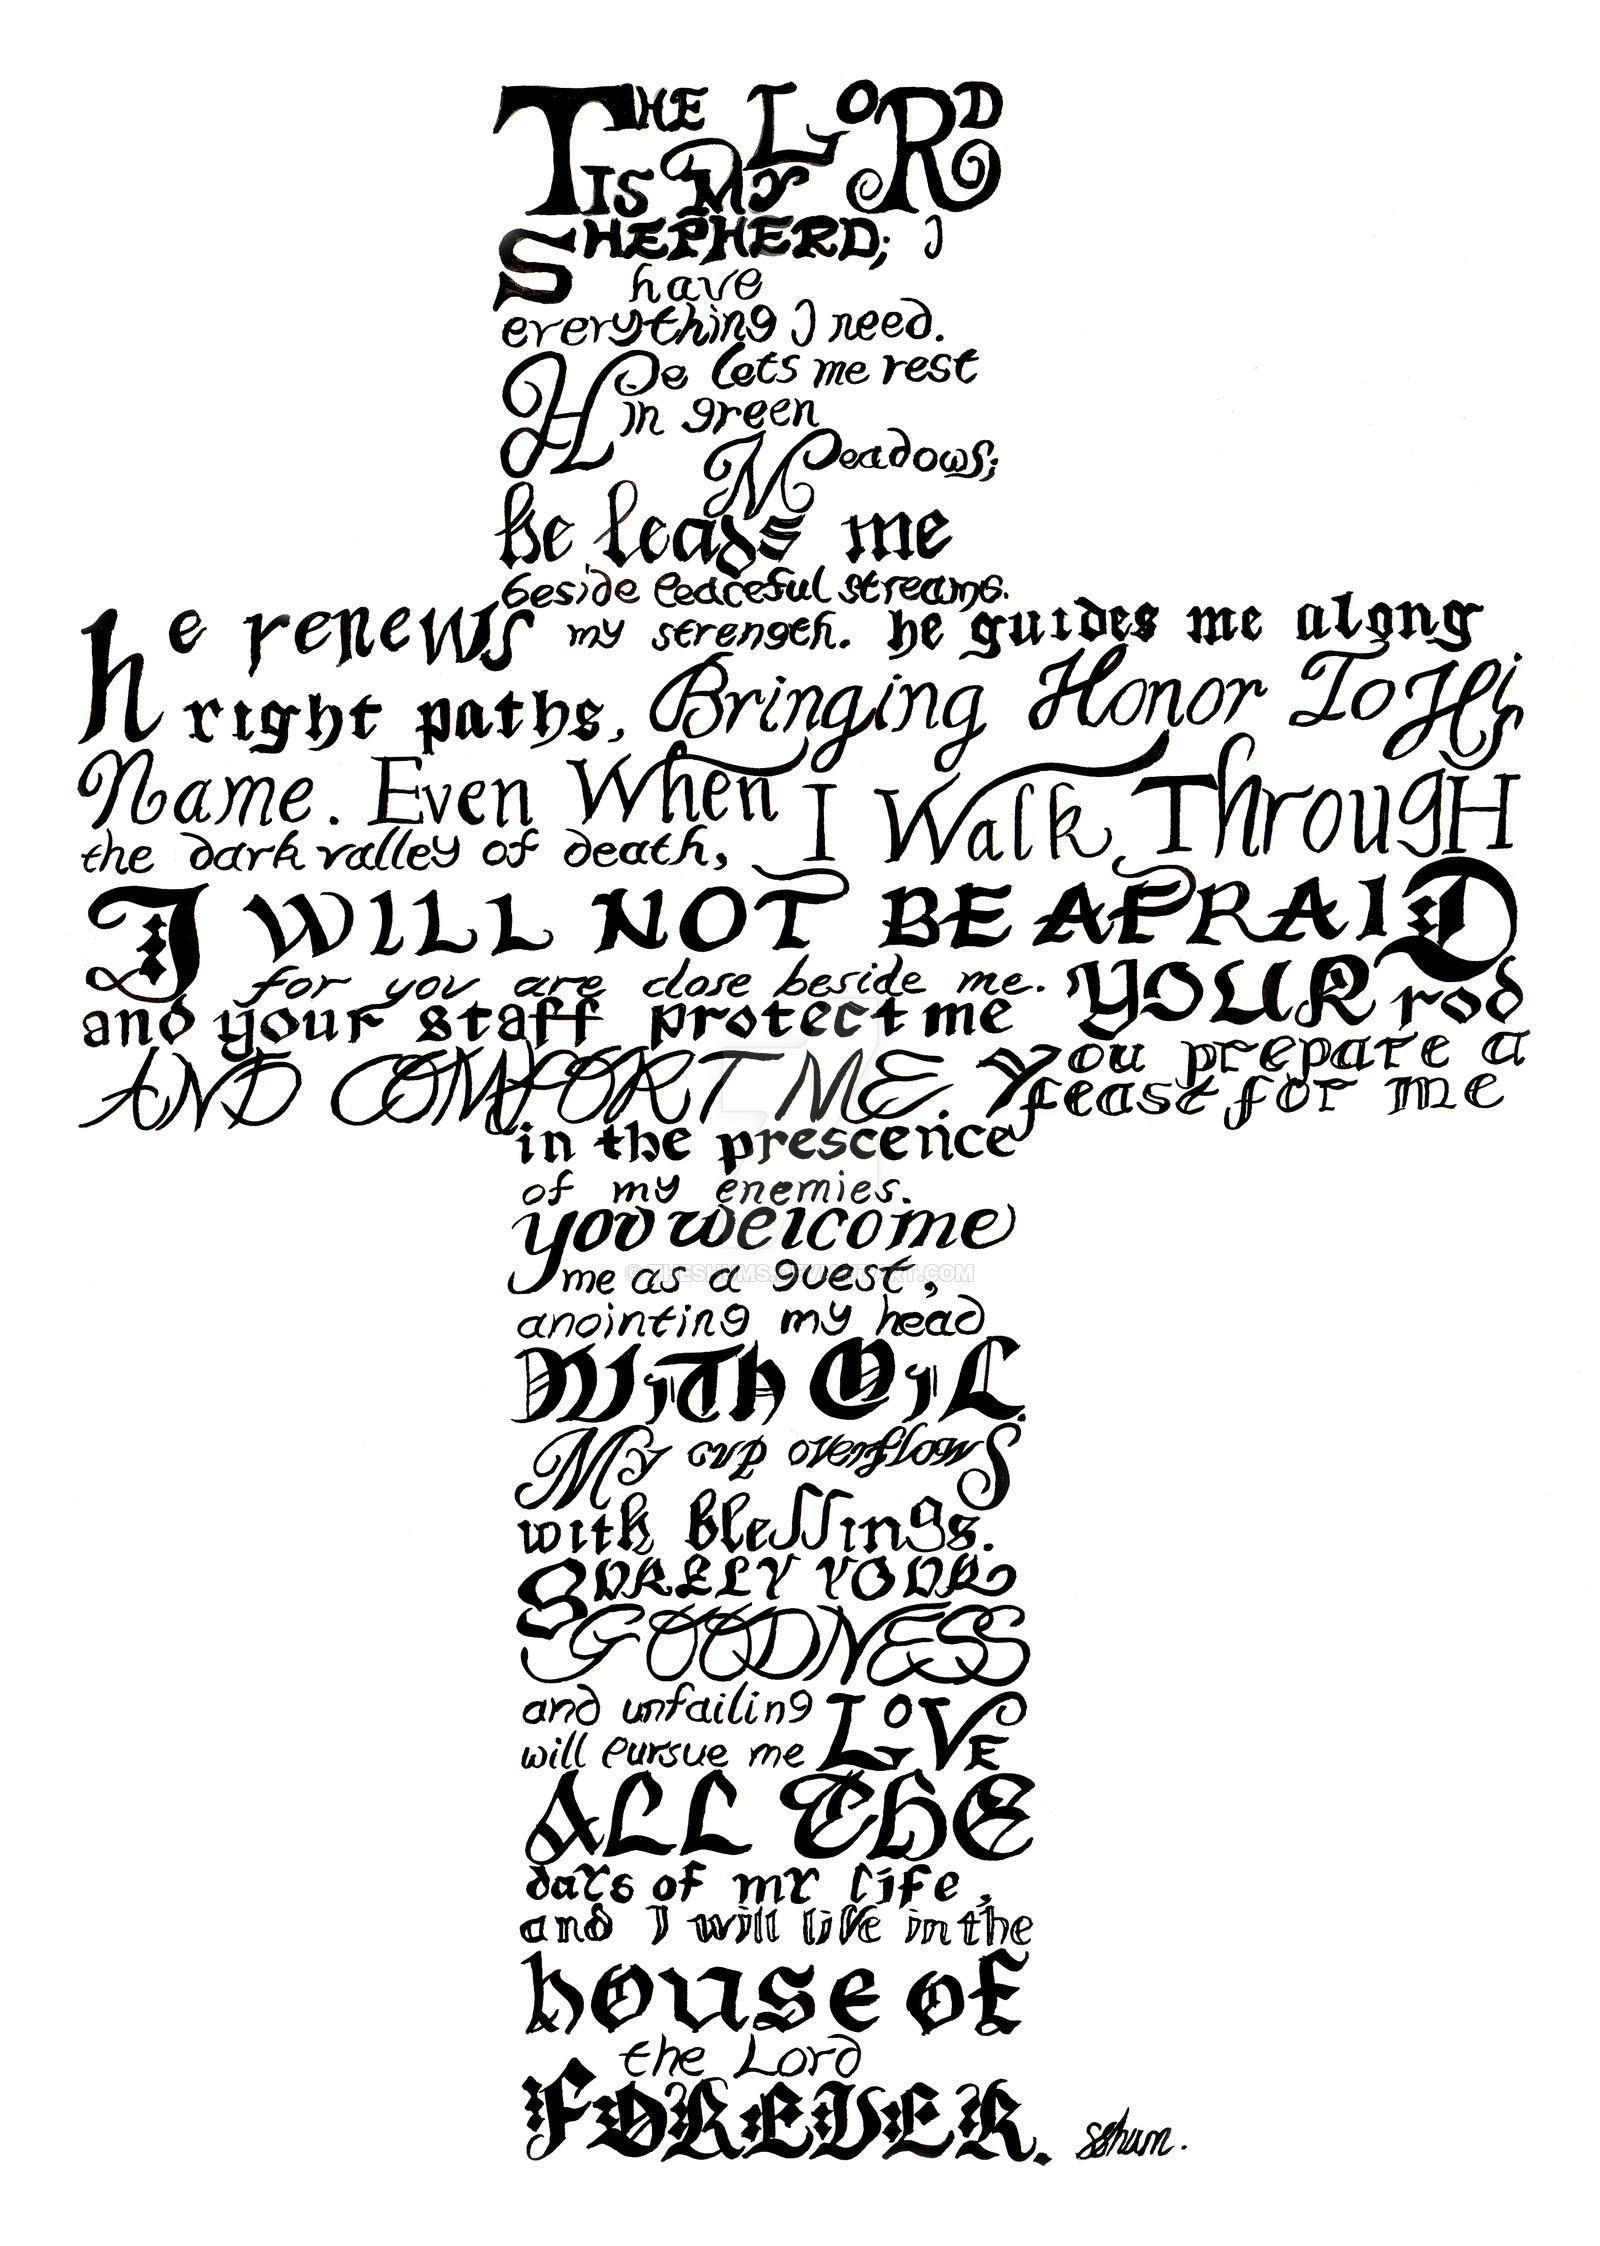 THE LORD
IS MY
SHEPHERD; I
have
everything I need.
He lets me rest
in green
Meadows;
he leads me
beside peaceful streams.
he renews my strength. he guides me along
right paths, Bringing Honor To His
Name. Even When I Walk Through
the dark valley of death,
I WILL NOT BE AFRAID
for you are close beside me. YOUR rod
and your staff protect me
AND COMFORT ME. You prepare a
feast for me
in the prescence
of my enemies.
you welcome
me as a guest,
anointing my head
WITH OIL.
My cup overflows
with blessings.
SURELY YOUR
GOODNESS
and unfailing LOVE
will pursue me
ALL THE
days of my life,
and I will live in the
house of
the Lord
FOREVER.
sshum.